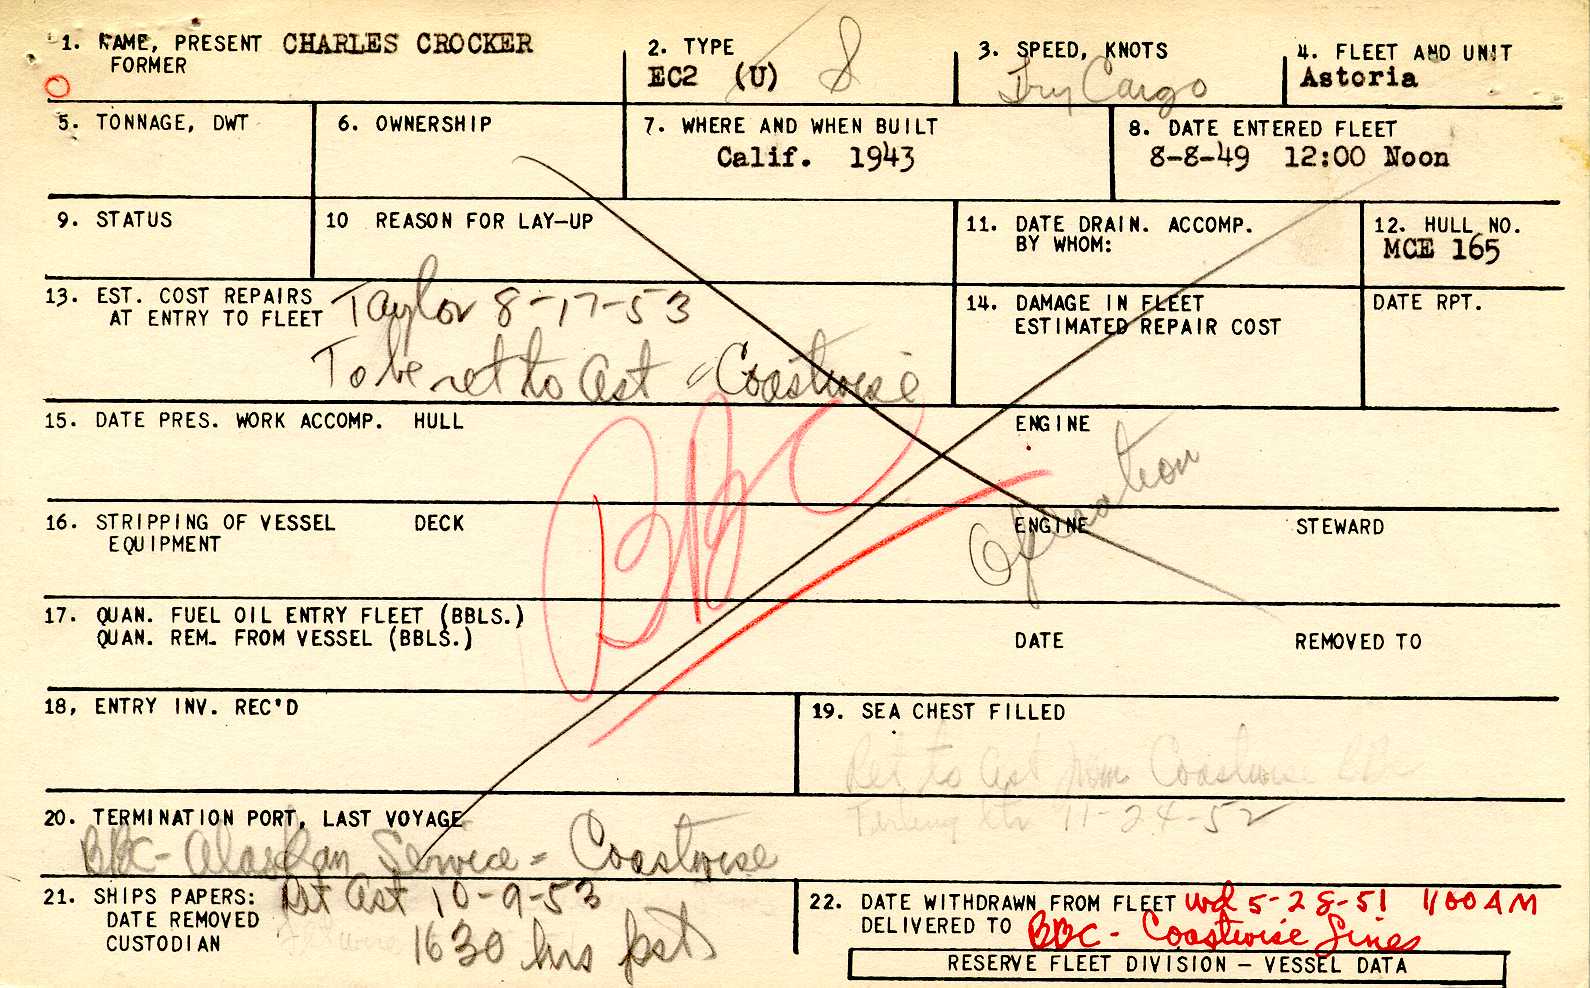 1. NAME, PRESENT CHARLES CROCKER
FORMER
2. TYPE
EC2 (U) S
3. SPEED, KNOTS
Dry Cargo
4. FLEET AND UNIT
Astoria
5. TONNAGE, DWT
6. OWNERSHIP
7. WHERE AND WHEN BUILT
Calif. 1943
8. DATE ENTERED FLEET
8-8-49 12:00 Noon
9. STATUS
10 REASON FOR LAY-UP
11. DATE DRAIN. ACCOMP.
BY WHOM:
12. HULL NO.
MCE 165
13. EST. COST REPAIRS
AT ENTRY TO FLEET
Taylor 8-17-53
To be ret to Ast - Coastwise
14. DAMAGE IN FLEET
ESTIMATED REPAIR COST
DATE RPT.
15. DATE PRES. WORK ACCOMP. HULL ENGINE
BBC
Operation
16. STRIPPING OF VESSEL DECK ENGINE STEWARD
EQUIPMENT
17. QUAN. FUEL OIL ENTRY FLEET (BBLS.)
QUAN. REM. FROM VESSEL (BBLS.) DATE REMOVED TO
18, ENTRY INV. REC'D
19. SEA CHEST FILLED
Ret to Ast from Coastwise
ltr 11-24-52
20. TERMINATION PORT, LAST VOYAGE
BBC - Alaskan Service = Coastwise
21. SHIPS PAPERS: Ret Ast 10-9-53
DATE REMOVED
CUSTODIAN 1630 hrs pst
22. DATE WITHDRAWN FROM FLEET wd 5-28-51 1100 AM
DELIVERED TO BBC - Coastwise Lines
RESERVE FLEET DIVISION - VESSEL DATA